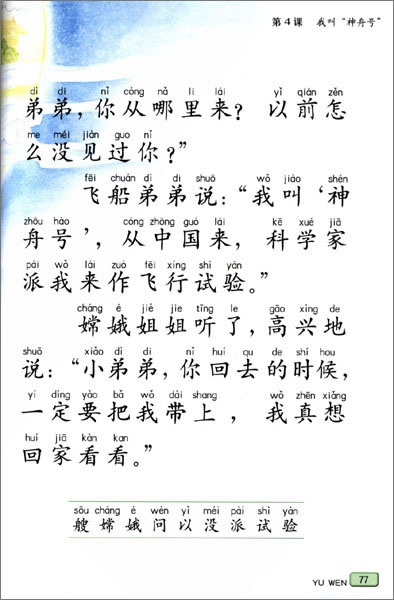 第4课 我叫“神舟号”
dì di nǐ cóng nǎ lǐ lái yǐ qián zěn
弟弟，你从哪里来？以前怎
me méi jiàn guo nǐ
么没见过你？”
fēi chuán dì di shuō wǒ jiào shén
飞船弟弟说：“我叫‘神
zhōu hào cóng zhōng guó lái kē xué jiā
舟号’，从中国来，科学家
pài wǒ lái zuò fēi xíng shì yàn
派我来作飞行试验。”
cháng é jiě jie tīng le gāo xìng de
嫦娥姐姐听了，高兴地
shuō xiǎo dì di nǐ huí qu de shí hou
说：“小弟弟，你回去的时候，
yí dìng yào bǎ wǒ dài shang wǒ zhēn xiǎng
一定要把我带上，我真想
huí jiā kàn kan
回家看看。”
sōu cháng é wèn yǐ méi pài shì yàn
艘嫦娥问以没派试验
YU WEN 77